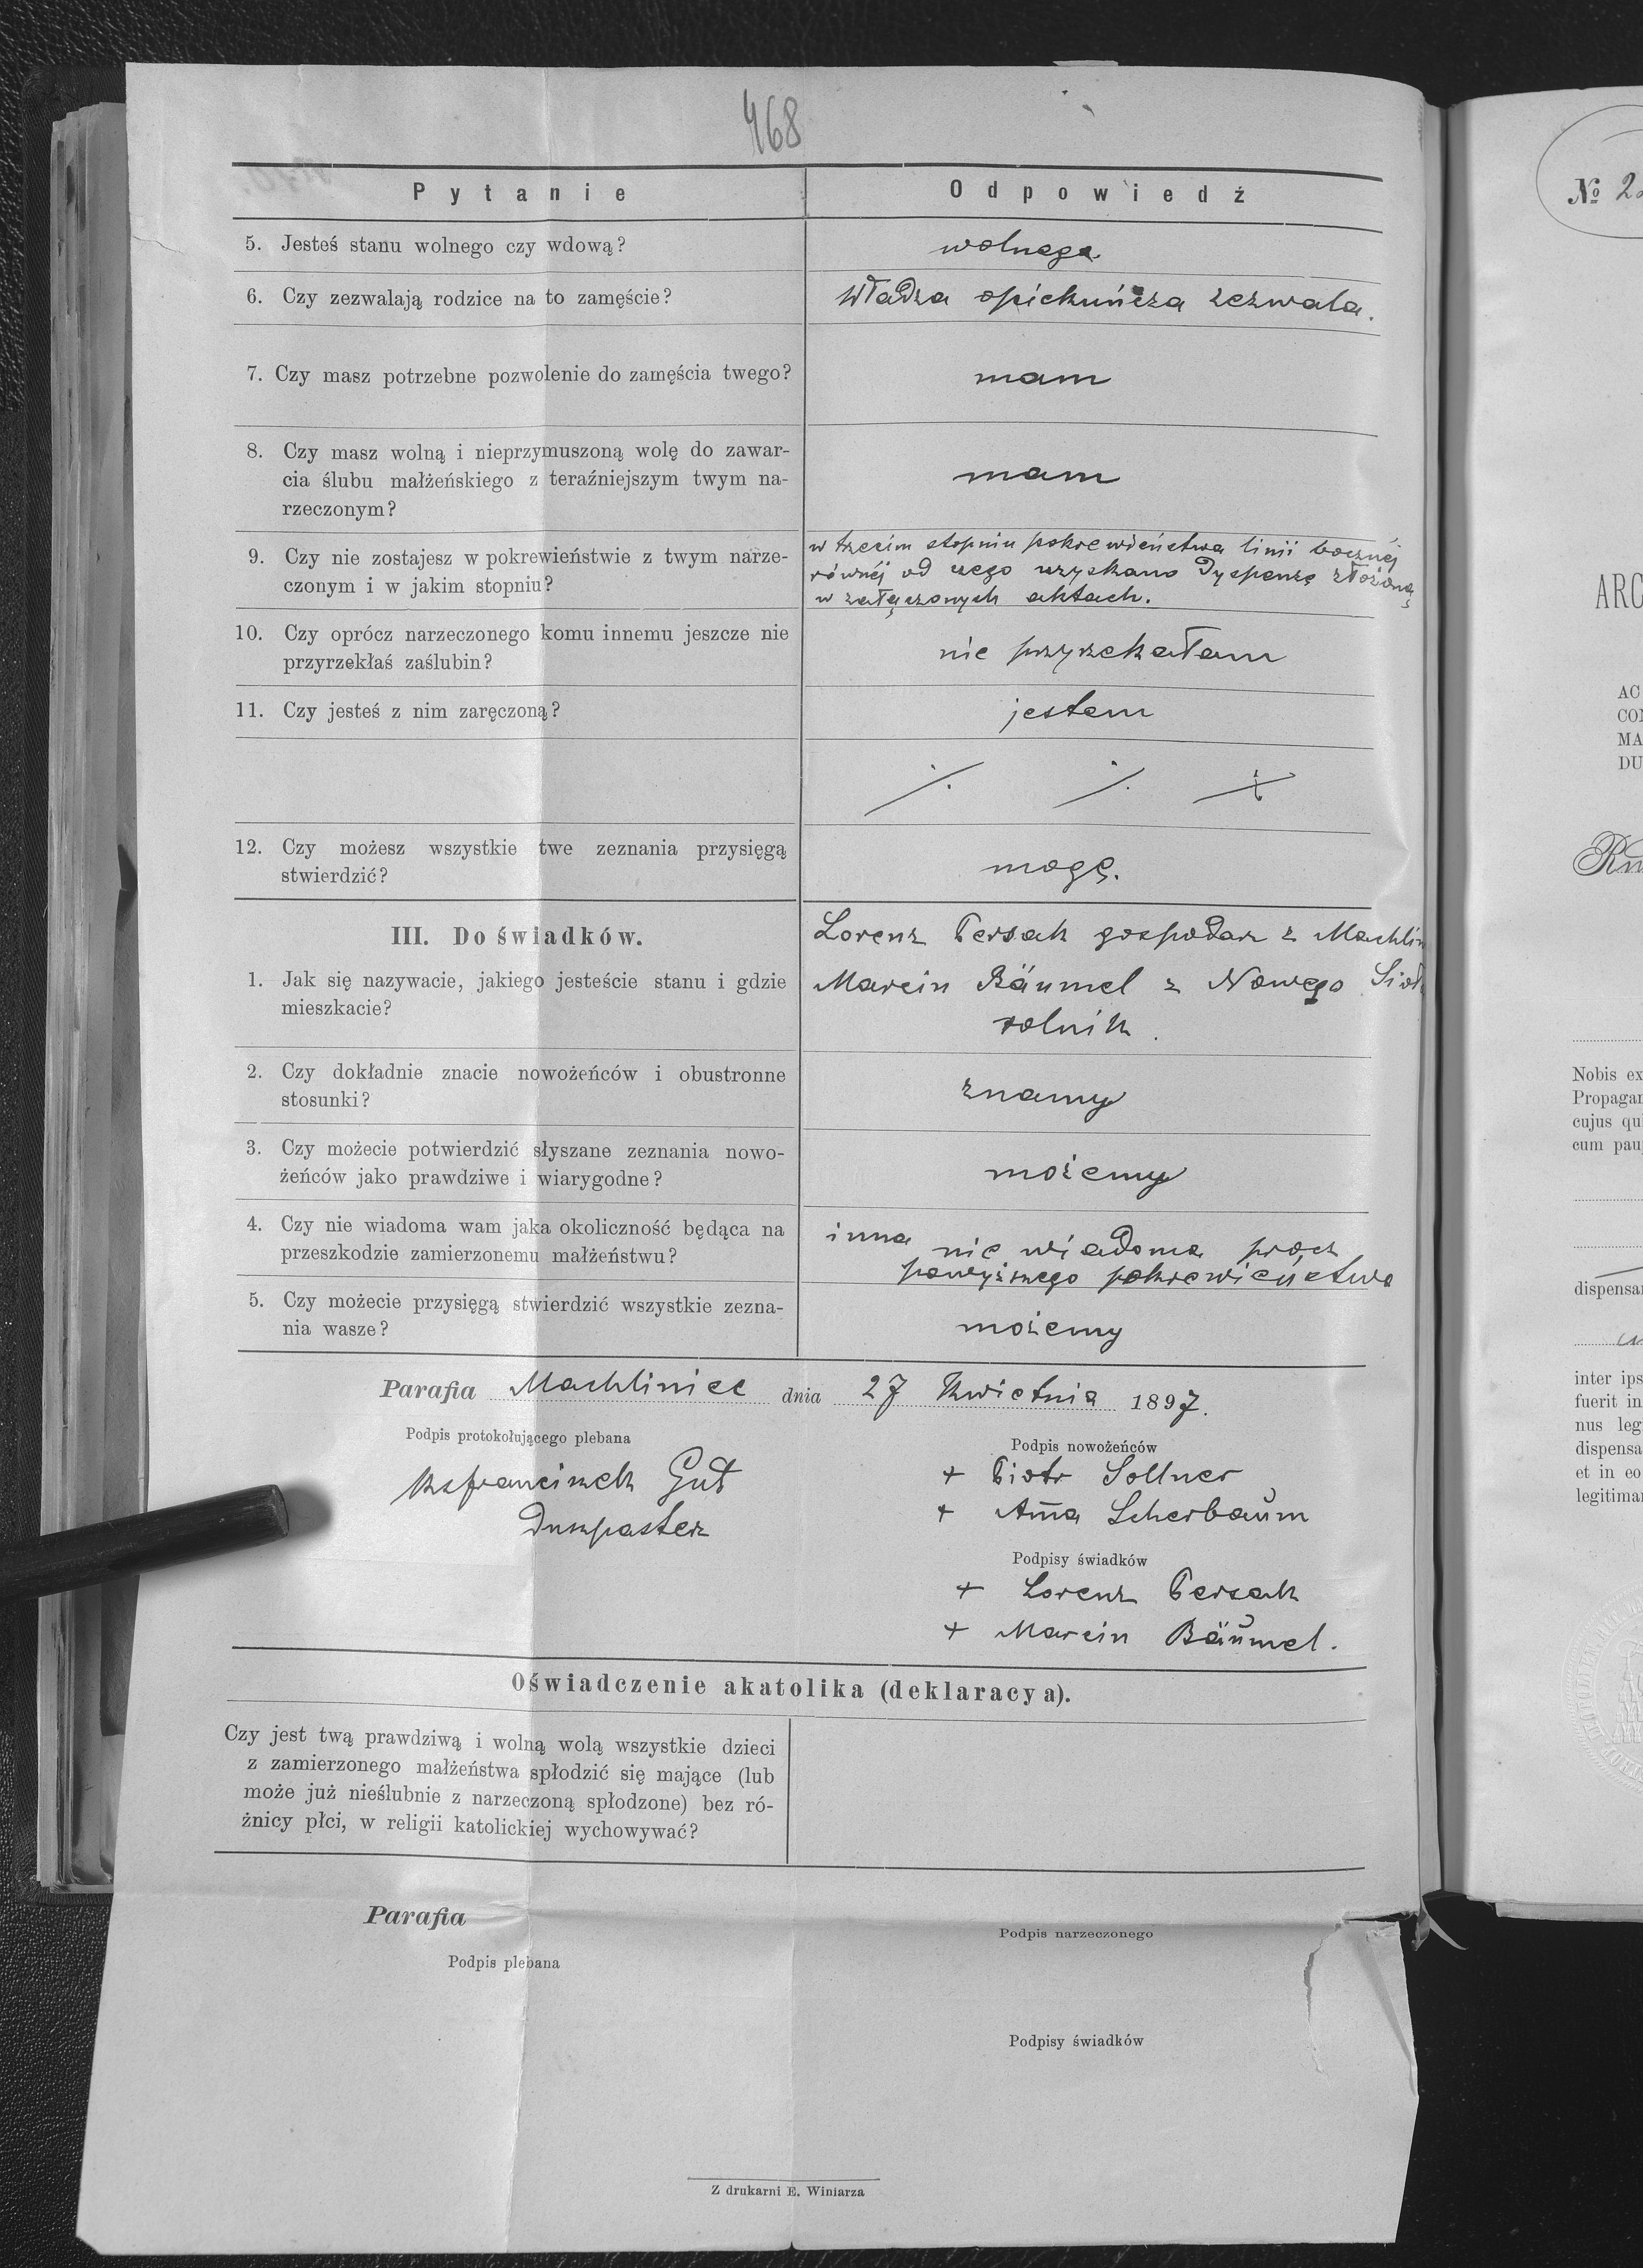 468
Pytanie
Odpowiedź
5. Jesteś stanu wolnego czy wdową?
wolnego
6. Czy zezwalają rodzice na to zamęście?
Władza opiekuńcza zezwala.
7. Czy masz potrzebne pozwolenie do zamęścia twego?
mam
8. Czy masz wolną i nieprzymuszoną wolę do zawar-
cia ślubu małżeńskiego z teraźniejszym twym na-
rzeczonym?
mam
9. Czy nie zostajesz w pokrewieństwie z twym narze-
czonym i w jakim stopniu?
w trzecim stopniu pokrewieństwa linii bocznéj
równéj od czego uzyskano dyspenzę złożoną
w załączonych aktach.
10. Czy oprócz narzeczonego komu innemu jeszcze nie
przyrzekłaś zaślubin?
nie przyrzekałam
11. Czy jesteś z nim zaręczoną?
jestem
12. Czy możesz wszystkie twe zeznania przysięgą
stwierdzić?
mogę.
III. Do świadków.
1. Jak się nazywacie, jakiego jesteście stanu i gdzie
mieszkacie?
Lorenz Persak gospodarz z Machlin
Marcin Bäumel z Nowego Sioł
rolnik.
2. Czy dokładnie znacie nowożeńców i obustronne
stosunki?
znamy
3. Czy możecie potwierdzić słyszane zeznania nowo-
żeńców jako prawdziwe i wiarygodne?
możemy
4. Czy nie wiadoma wam jaka okoliczność będąca na
przeszkodzie zamierzonemu małżeństwu?
inna nie wiadoma prócz
powyższego pokrewieństwa
5. Czy możecie przysięgą stwierdzić wszystkie zezna-
nia wasze?
możemy
Parafia Machliniec dnia 27 Kwietnia 1897.
Podpis protokołującego plebana
Ks Franciszek Gut
Duszpasterz
Podpis nowożeńców
+ Piotr Sollner
+ Anna Scherbaum
Podpisy świadków
+ Lorenz Persak
+ Marcin Bäumel.
Oświadczenie akatolika (deklaracya).
Czy jest twą prawdziwą i wolną wolą wszystkie dzieci
z zamierzonego małżeństwa spłodzić się mające (lub
może już nieślubnie z narzeczoną spłodzone) bez ró-
żnicy płci, w religii katolickiej wychowywać?
Parafia
Podpis plebana
Podpis narzeczonego
Podpisy świadków
Z drukarni E. Winiarza
№ 2
ARC
AC
CO
MA
DU
Nobis ex
Propagan
cujus qu
cum pau
dispensa
inter ips
fuerit in
nus leg
dispensa
et in eo
legitima